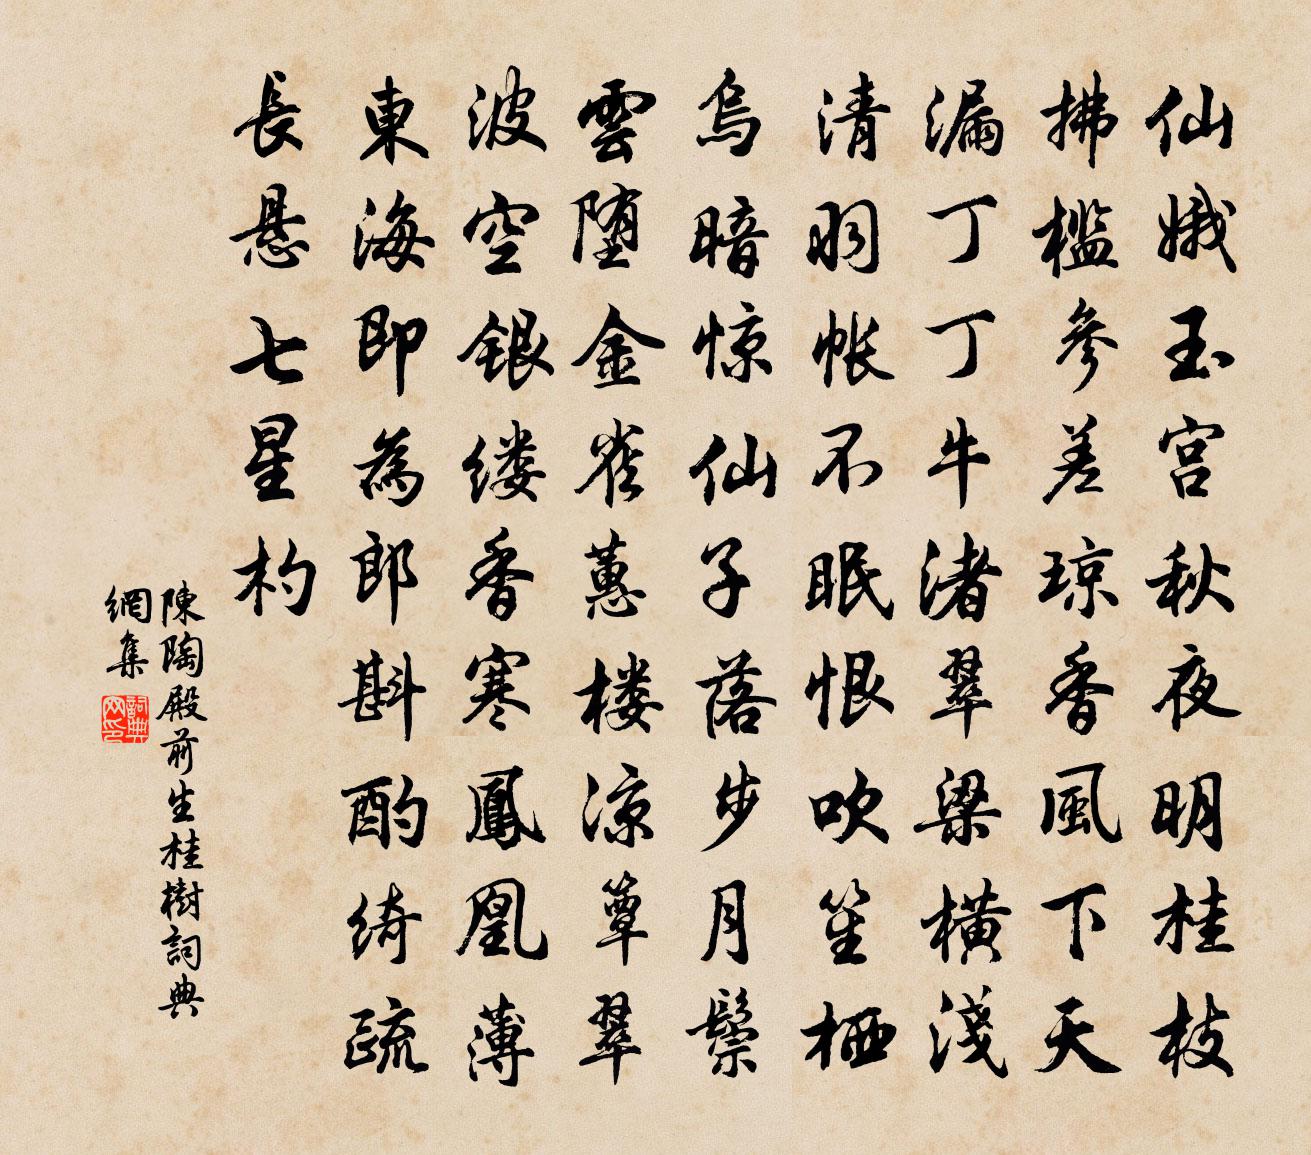 仙娥玉宫秋夜明桂枝
拂槛參差琼香風下天
漏丁丁牛渚翠梁横淺
清羽帐不眠恨吹笙栖
烏暗惊仙子落步月鬃
雲堕金雀蕙楼凉簟翠
波空銀缕香寒鳳凰薄
東海即為郎斟酌绮疏
長悬七星杓
陳陶殿前生桂樹詞典
網集
詞典
网印